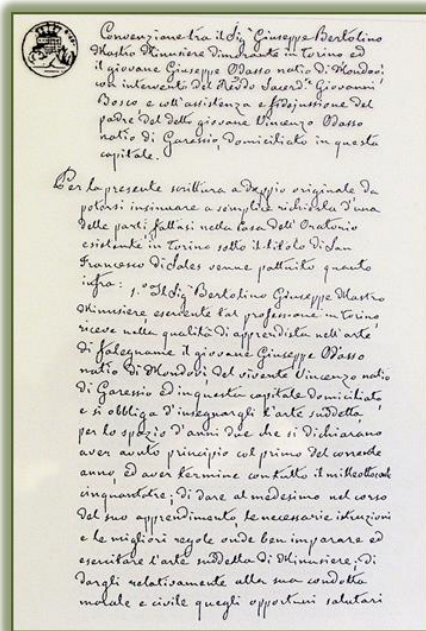 Convenzione tra il Sig.r Giuseppe Bertolino
Mastro Minusiere dimorante in Torino ed
il giovane Giuseppe Odasso natio di Mondovì
con intervento del Rev.do Sacerd. Giovanni
Bosco e coll'assistenza e fidejussione del
padre del detto giovane Vincenzo Odasso
natio di Garessio, domiciliato in questa
capitale.
Per la presente scrittura a doppio originale da
potersi insinuare a semplice richiesta d'una
delle parti fattasi nella Casa dell'Oratorio
esistente in Torino sotto il titolo di San
Francesco di Sales venne pattuito quanto
infra: 1.° Il Sig.r Bertolino Giuseppe Mastro
Minusiere esercente tal professione in Torino
riceve nella qualità di apprendista nell'arte
di falegname il giovane Giuseppe Odasso
natio di Mondovì del vivente Vincenzo natio
di Garessio ed in questa capitale domiciliato
e si obbliga d'insegnargli l'arte suddetta
per lo spazio d'anni due che si dichiarano
aver avuto principio col primo del corrente
anno, ed aver termine con tutto il milleottocento
cinquantatre; di dare al medesimo nel corso
del suo apprendimento, le necessarie istruzioni
e le migliori regole onde ben imparare ed
esercitare l'arte suddetta di Minusiere; di
dargli relativamente alla sua condotta
morale e civile quegli opportuni salutari